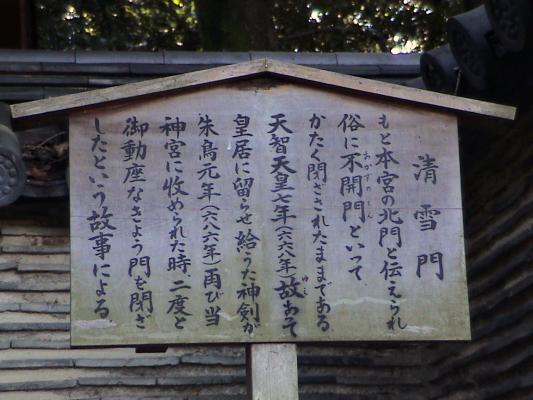 清雪門
もと本宮の北門と伝えられ
俗に不開門といって
あかずのもん
かたく閉ざされたままである
天智天皇七年(六六八年)故あって
ゆえ
皇居に留らせ給うた神剣が
朱鳥元年(六八六年)再び当
神宮に収められた時二度と
御動座なきよう門を閉ざ
したという故事による